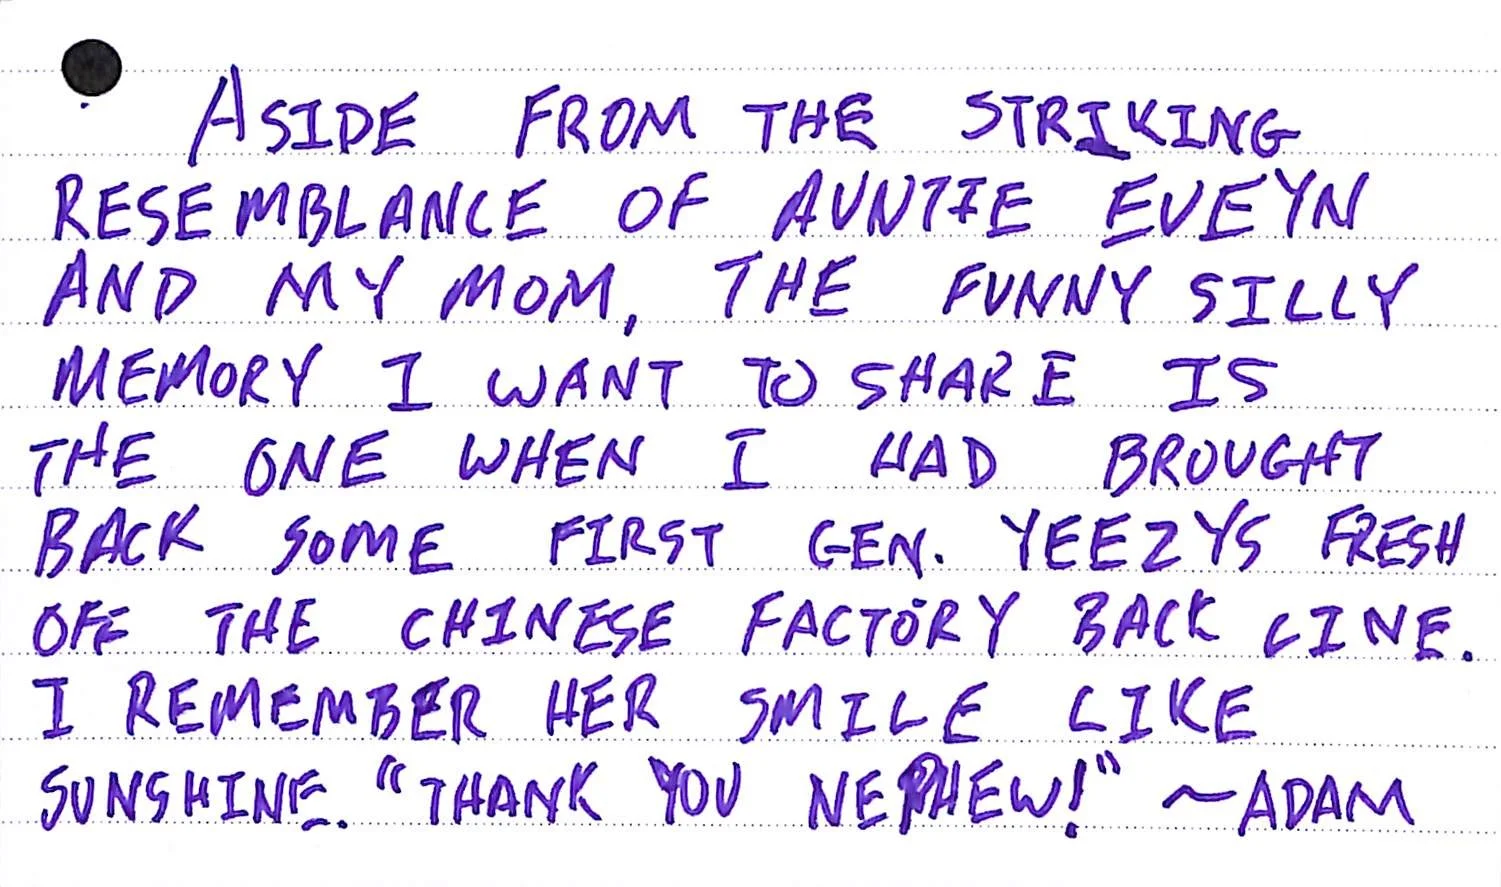 ASIDE FROM THE STRIKING
RESEMBLANCE OF AUNTIE EVEYN
AND MY MOM, THE FUNNY SILLY
MEMORY I WANT TO SHARE IS
THE ONE WHEN I HAD BROUGHT
BACK SOME FIRST GEN. YEEZYS FRESH
OFF THE CHINESE FACTORY BACK LINE.
I REMEMBER HER SMILE LIKE
SUNSHINE. "THANK YOU NEPHEW!" ~ADAM